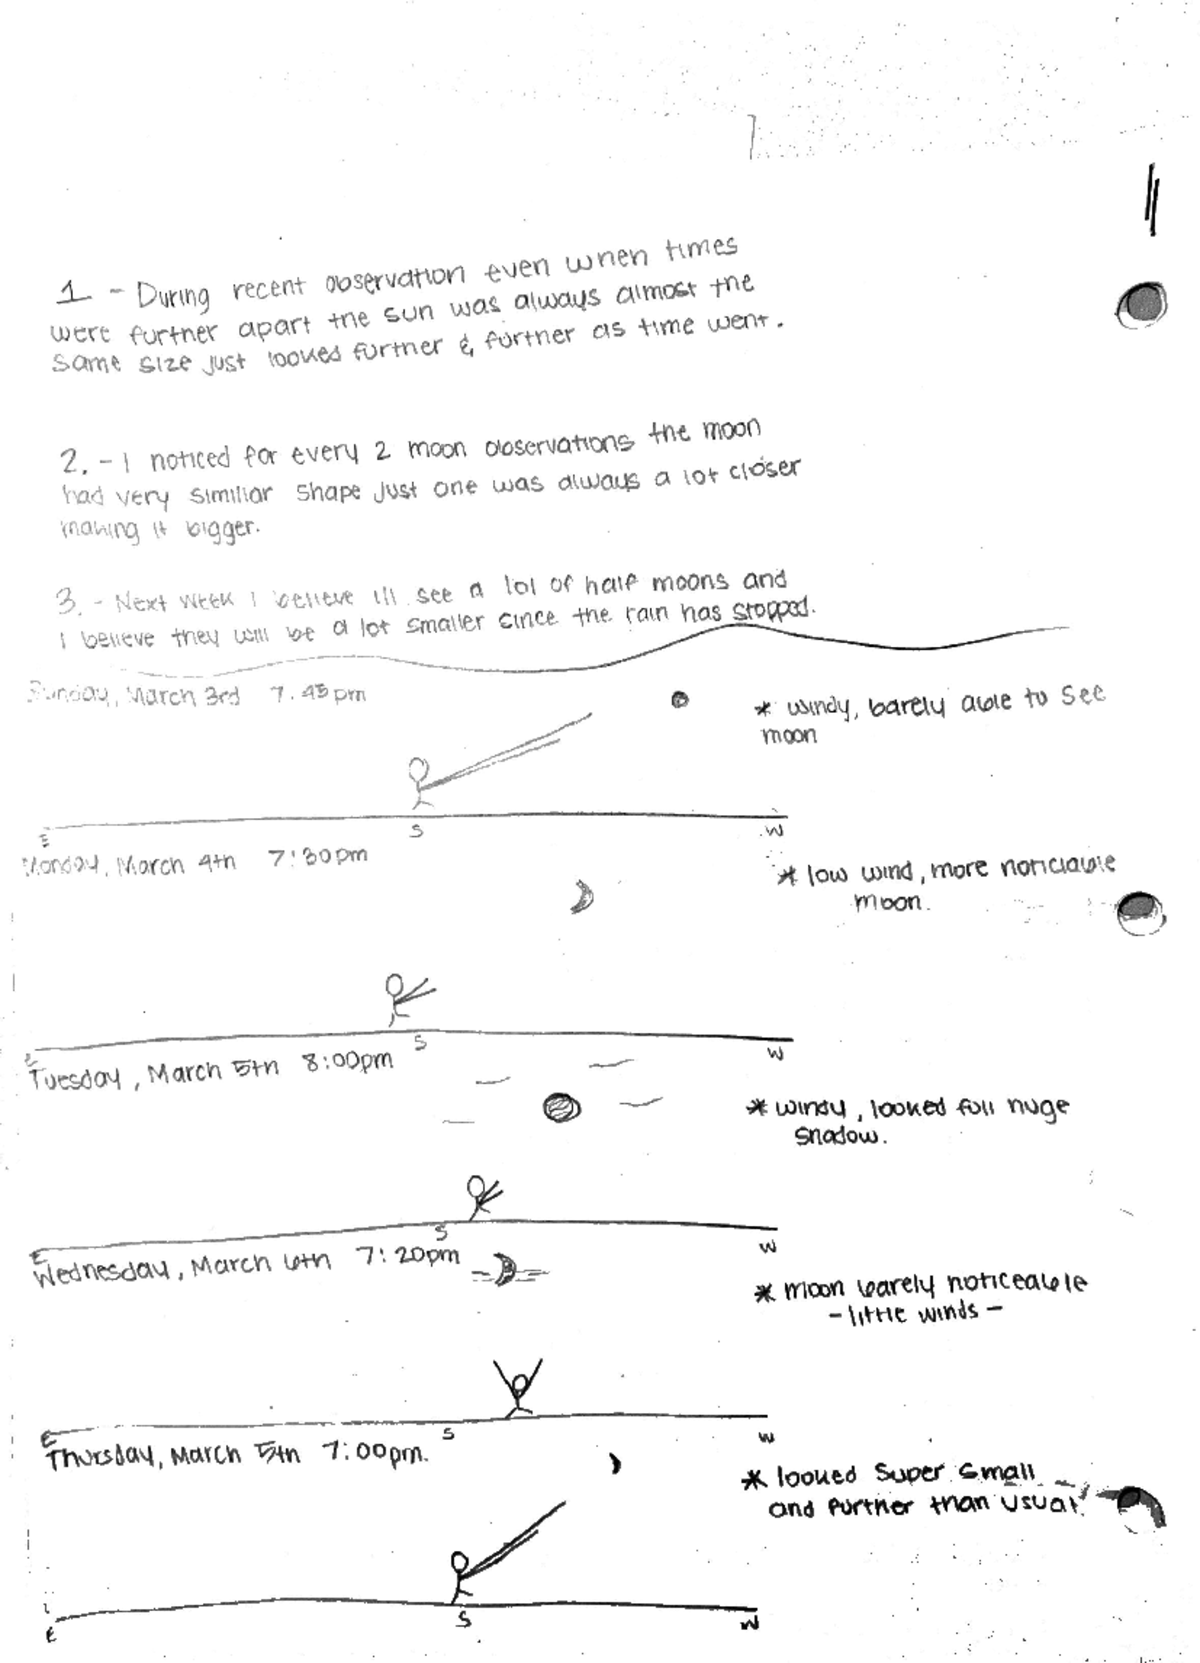 1 - During recent observation even when times
were further apart the sun was always almost the
same size just looked further & further as time went.
2. - I noticed for every 2 moon observations the moon
had very similiar shape just one was always a lot closer
making it bigger.
3. - Next week I believe ill see a lol of half moons and
I believe they will be a lot smaller since the rain has stopped.
Sunday, March 3rd 7:45pm
* windy, barely able to see
moon
E S W
Monday, March 4th 7:30pm
* low wind, more noticiable
moon.
E S W
Tuesday, March 5th 8:00pm
* windy, looked full huge
shadow.
E S W
Wednesday, March 6th 7:20pm
* moon barely noticeable
- little winds -
E S W
Thursday, March 5th 7:00pm.
* looked super small
and further than usual.
E S W